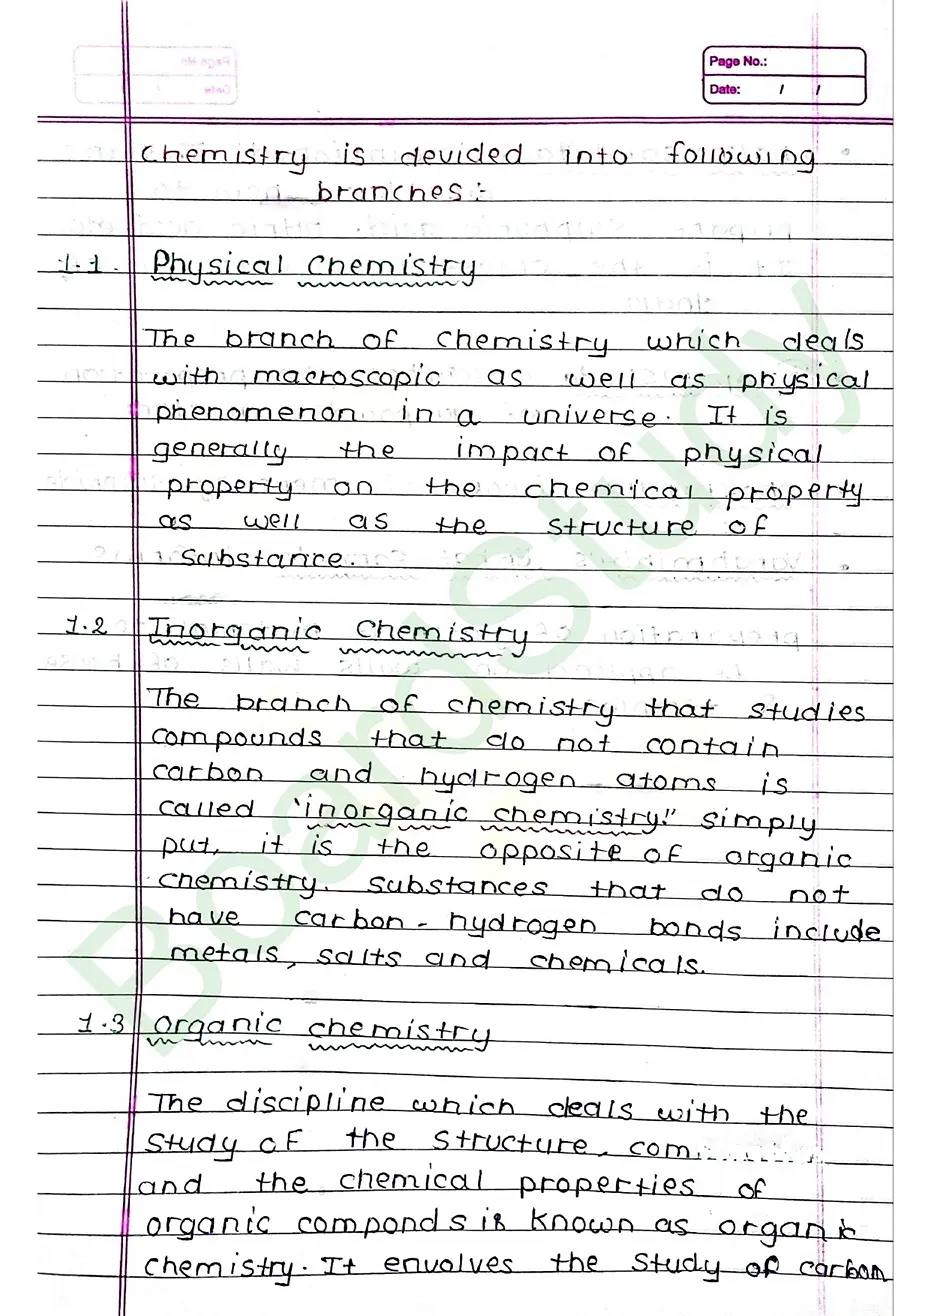 Page No.:
Date: / /
Chemistry is devided into following
branches:-
1.1. Physical Chemistry
The branch of chemistry which deals
with macroscopic as well as physical
phenomenon in a universe. It is
generally the impact of physical
property on the chemical property
as well as the structure of
substance.
1.2 Inorganic Chemistry
The branch of chemistry that studies
compounds that do not contain
carbon and hydrogen atoms is
called 'inorganic chemistry." simply
put, it is the opposite of organic
chemistry. substances that do not
have carbon - hydrogen bonds include
metals, salts and chemicals.
1.3 organic chemistry
The discipline which deals with the
study of the structure, com
and the chemical properties of
organic componds is known as organic
chemistry. It envolves the study of carbon
BoardStudy